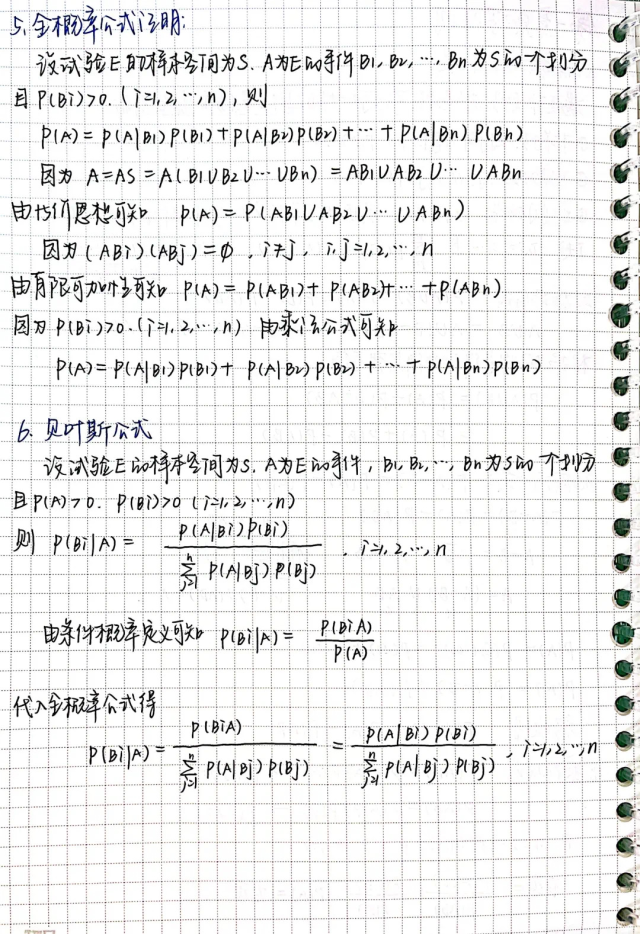 5. 全概率公式证明:
设试验E的样本空间为S. A为E的事件 B1, B2, ···, Bn 为S的一个划分
且 P(Bi)>0. (i=1, 2, ···, n), 则
P(A) = P(A|B1) P(B1) + P(A|B2) P(B2) + ··· + P(A|Bn) P(Bn)
因为 A = AS = A ( B1 ∪ B2 ∪ ··· ∪ Bn ) = AB1 ∪ AB2 ∪ ··· ∪ ABn
由均价思想可知 P(A) = P( AB1 ∪ AB2 ∪ ··· ∪ ABn )
因为 ( ABi ) ( ABj ) = ∅ , i≠j , i, j=1, 2, ···, n
由有限可加性可知 P(A) = P(AB1) + P(AB2) + ··· + P(ABn)
因为 P(Bi)>0. (i=1, 2, ···, n) 由乘法公式可知
P(A) = P(A|B1) P(B1) + P(A|B2) P(B2) + ··· + P(A|Bn) P(Bn)
6. 贝叶斯公式
设试验E的样本空间为S. A为E的事件, B1, B2, ···, Bn 为S的一个划分
且 P(A)>0. P(Bi)>0 (i=1, 2, ···, n)
则 P(Bi|A) = P(A|Bi) P(Bi) / ∑_{j=1}^{n} P(A|Bj) P(Bj) , i=1, 2, ···, n
由条件概率定义可知 P(Bi|A) = P(BiA) / P(A)
代入全概率公式得
P(Bi|A) = P(BiA) / ∑_{j=1}^{n} P(A|Bj) P(Bj) = P(A|Bi) P(Bi) / ∑_{j=1}^{n} P(A|Bj) P(Bj) , i=1, 2, ···, n